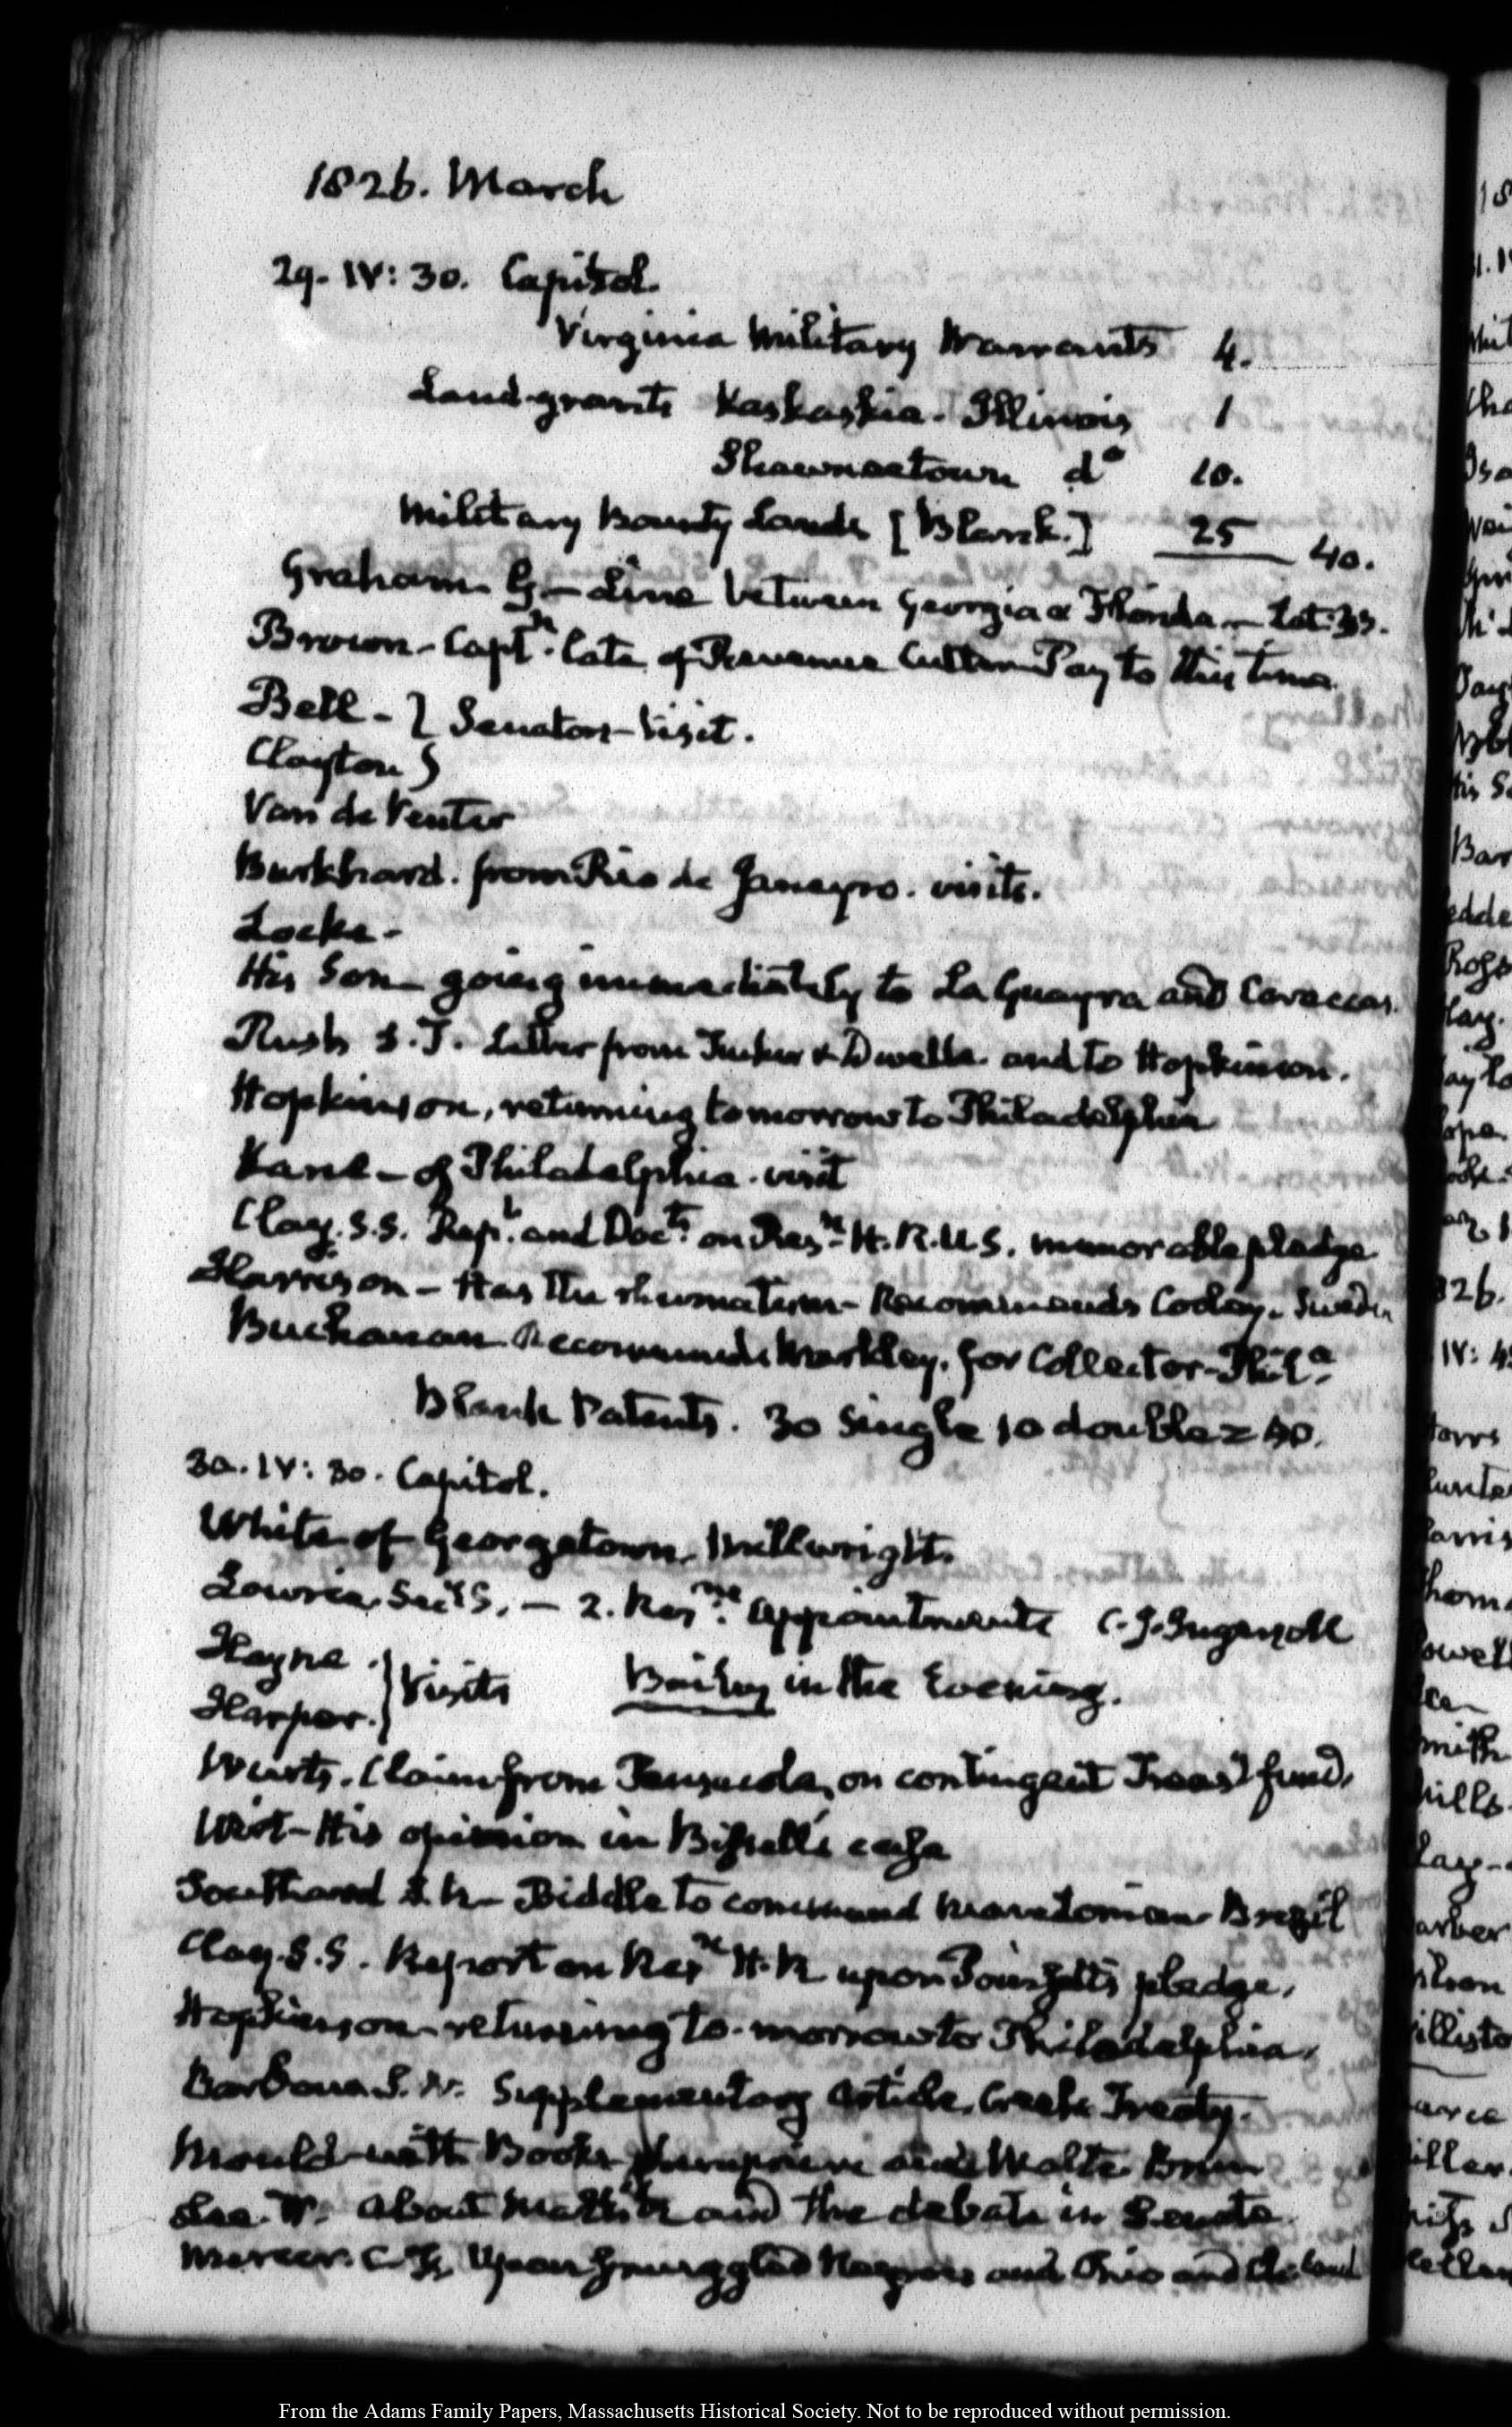 1826. March
29. IV: 30. Capitol.
Virginia Military Warrants 4.
Land grants Kaskaskia. Illinois 1
Shawneetown do 10.
Military Bounty Lands [Blank.] 25 40.
Graham G— Line between Georgia & Florida — Let:
Brown - Captn. late of Revenue Cutter Pay to this time
Bell - } Senators - Visit.
Clayton }
Van de Venter
Burkhard. from Rio de Janeyro. visits.
Locke -
His Son - going immediately to La Guayra and Caraccas.
Rush S. T. Letter from Tucker & and to Hopkinson.
Hopkinson, returning tomorrow to Philadelphia
Kane - of Philadelphia. visit
Clay. S.S. Rept. and Docts. on Resn. H.R.U.S. memorable pledge
Harrison - Has the rheumatism - Recommends Sweden
Buchanan Recommends Markley. for Collector - Phila.
Blank Patents. 30 Single 10 double = 40.
30. IV: 30. Capitol.
White of Georgetown. Millwright.
Lowrie. Secy S. — 2. appointments C. J. Ingersoll
Hayne. } Visits Bailey in the Evening.
Harper. }
Claim from on contingent Treasy fund.
Wirt - His opinion in case
Southard S. N - Biddle to command Macedonian - Brazil
Clay. S.S. Report on Resn H.R upon Poinsett's pledge.
Hopkinson - returning to-morrow to Philadelphia.
Barbour S. W. Supplementary Article. Creek Treaty.
Mould with Books and Malte Brun
Lee. W. about and the debate in Senate
Mercer. C. F. Upon smuggled Negroes and Ohio and
From the Adams Family Papers, Massachusetts Historical Society. Not to be reproduced without permission.